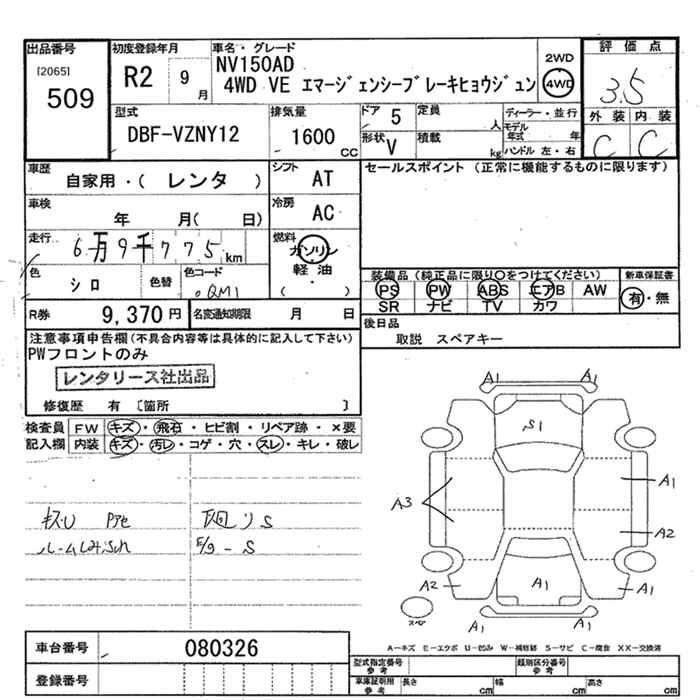 出品番号
[2065]
509
初度登録年月
R2 9月
車名・グレード
NV150AD
4WD VE エマージェンシーブレーキヒョウジュン
2WD
4WD
評価点
3.5
外装 内装
C C
型式
DBF-VZNY12
排気量
1600 CC
ドア 5
定員 人
形状 V
積載 kg
ディーラー・並行
モデル年式 年
ハンドル 左・右
車歴
自家用・( レンタ )
シフト AT
車検
年 月( 日)
冷房 AC
走行
6万9千775 km
燃料
ガソリン
軽油
・
( )
色 シロ 色替 色コード QM1
R券 9,370円 名変通知期限 月 日
セールスポイント (正常に機能するものに限ります)
装備品 (純正品に限り○をつけてください) 新車保証書
PS PW ABS エアB AW 有・無
SR ナビ TV カワ
後日品
取説 スペアキー
注意事項申告欄(不具合内容等は具体的に記入して下さい)
PWフロントのみ
レンタリース社出品
修復歴 有 〔箇所 〕
検査員記入欄
FW キズ・飛石・ヒビ割・リペア跡・×要
内装 キズ・汚レ・コゲ・穴・スレ・キレ・破レ
キズU
ルームしみ
S
A1 A1
S1
A3
A1
A2
A2 A1 A1
A1 A1
スペア
A-キズ E-エクボ U-凹み W-補修跡 S-サビ C-腐食 XX-交換済
車台番号 080326
登録番号
型式指定番号 参考
類別区分番号 参考
車庫証明用 参考 長さ cm 幅 cm 高さ cm